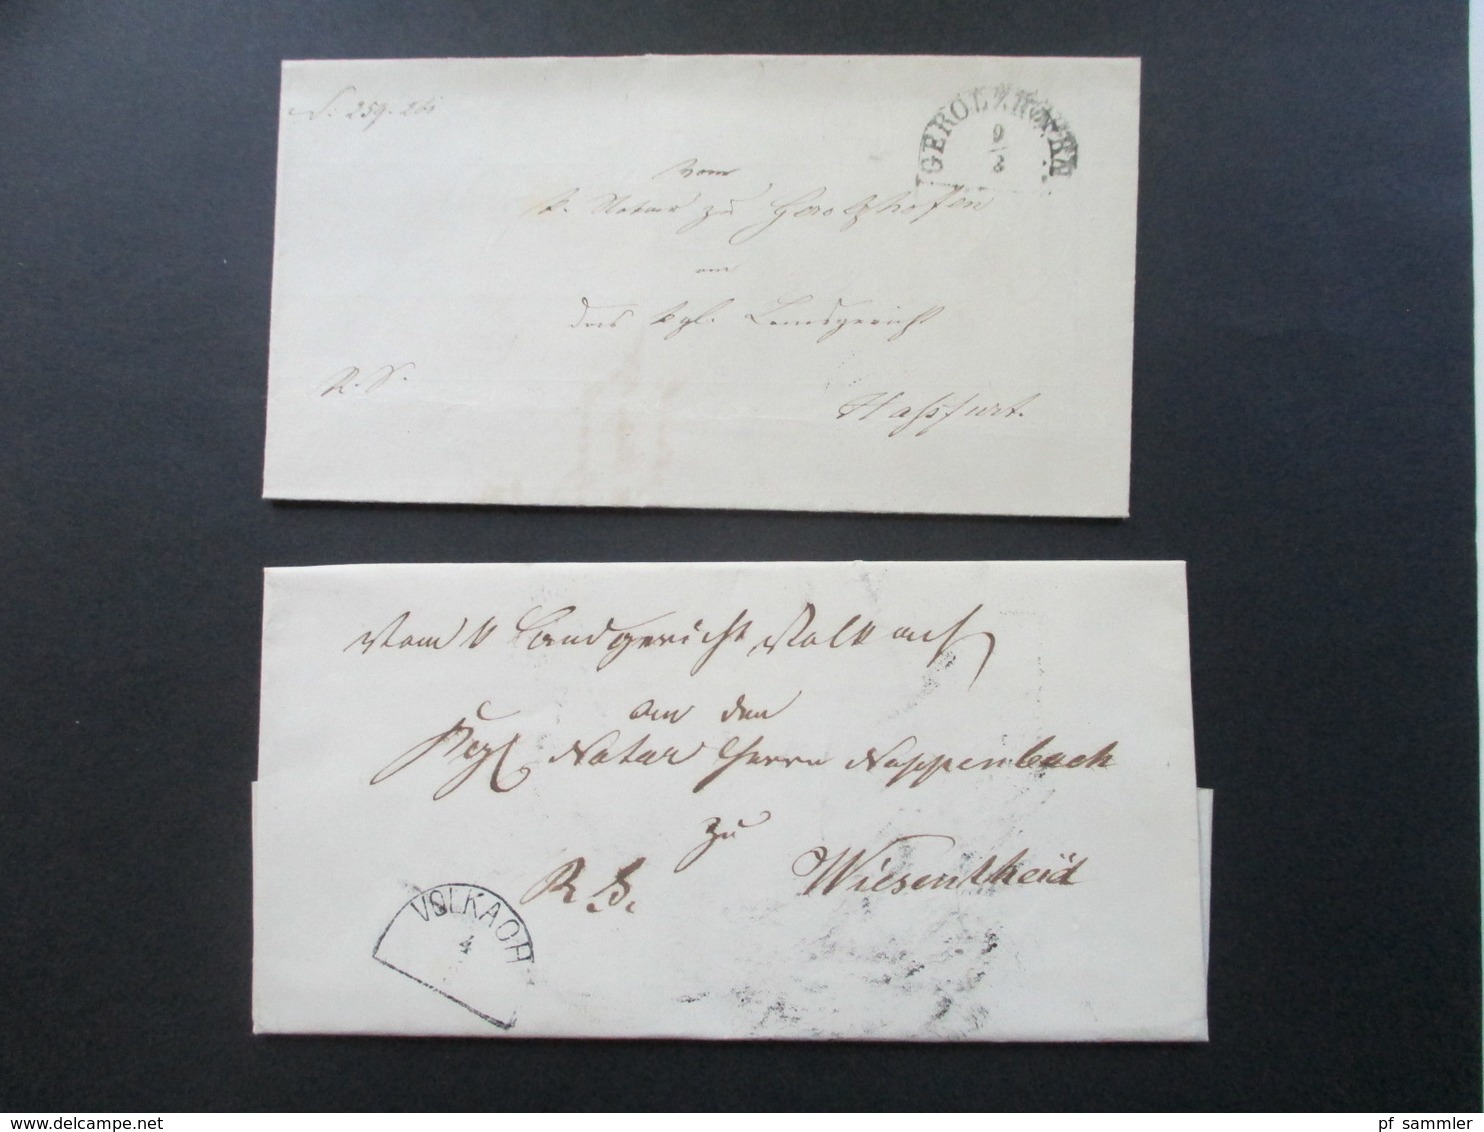 N. 259. 261
GEROLZHOFEN
9/3
vom
k. Notar zu Gerolzhofen
an
das kgl. Landgericht
R. S.
Hassfurt.
Vom k Landgericht Volkach
an den
Kgl Notar Herrn Nappenbach
zu
R. S.
Wiesentheid
VOLKACH
4
www.delcampe.net
pf_sammler